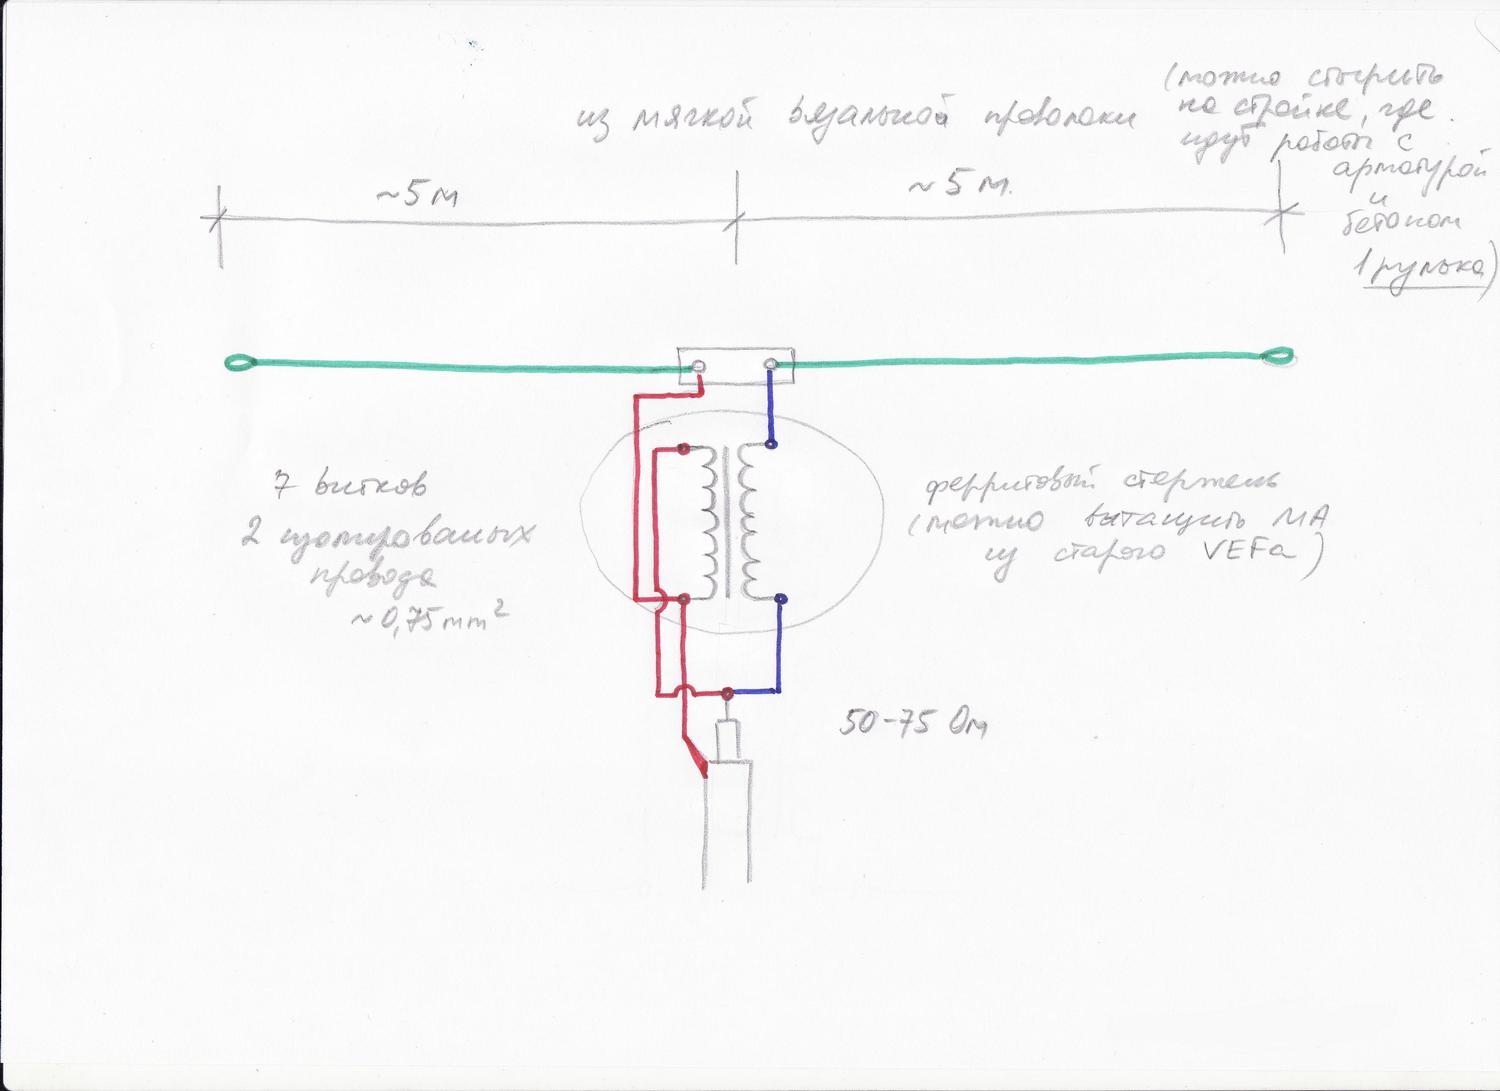 из мягкой вязальной проволоки
(можно стырить
на стройке, где
идут работы с
арматурой
и
бетоном
1 рулька)
~5 м
~5 м.
7 витков
2 изолированых
провода
~0,75 mm²
ферритовый стержень
(можно вытащить МА
из старого VEFа)
50-75 Ом